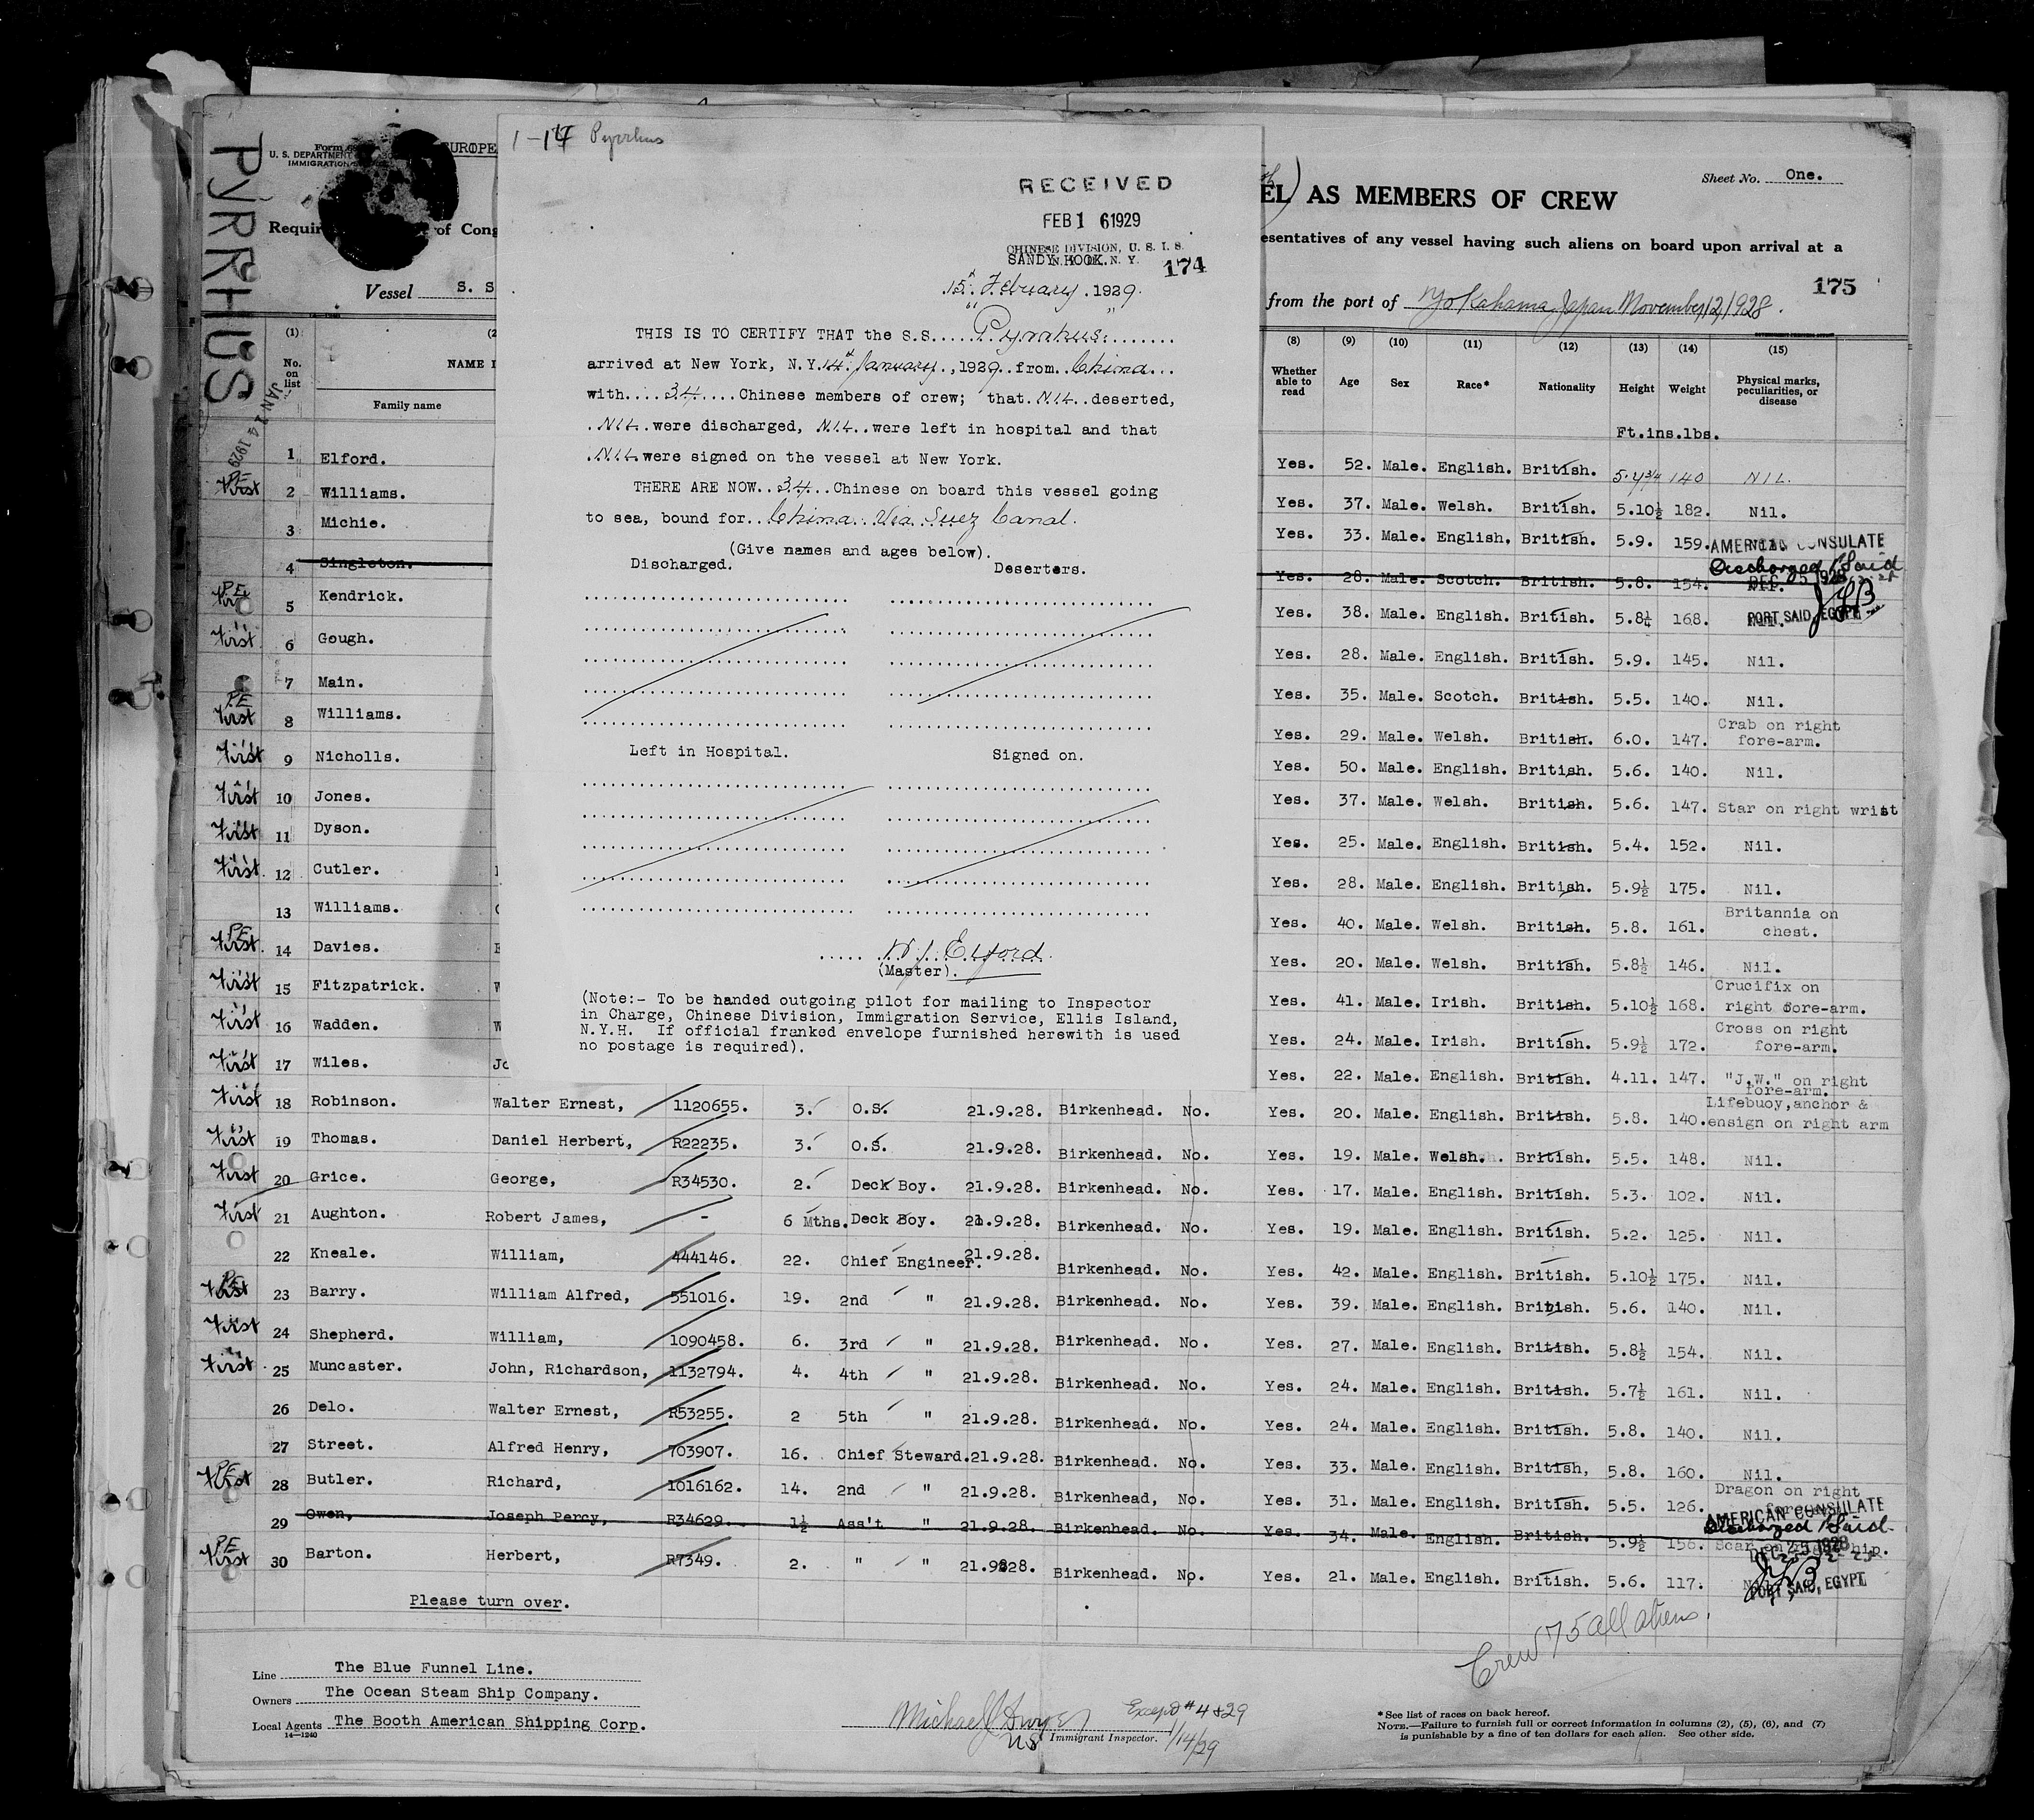 1-14 Pyrrhus
RECEIVED
FEB 1 6 1929
CHINESE DIVISION, U. S. I. S.
SANDY HOOK, N. Y.
174
15th February. 1929.
THIS IS TO CERTIFY THAT the S.S....."Pyrrhus".......
arrived at New York, N.Y. 14th January., 1929..from..China...
with....34.....Chinese members of crew; that.NIL..deserted,
.NIL..were discharged, NIL..were left in hospital and that
.NIL.were signed on the vessel at New York.
THERE ARE NOW..34...Chinese on board this vessel going
to sea, bound for..China..Via Suez Canal.
(Give names and ages below).
Discharged. Deserters.
Left in Hospital. Signed on.
..... W.J. Elford.
(Master).
(Note:- To be handed outgoing pilot for mailing to Inspector
in Charge, Chinese Division, Immigration Service, Ellis Island,
N.Y.H. If official franked envelope furnished herewith is used
no postage is required).
PYRRHUS
JAN 14 1929
Form
U. S. DEPARTMENT
IMMIGRATION
EUROPE
Sheet No. One.
EL) AS MEMBERS OF CREW
Requir of Cong
esentatives of any vessel having such aliens on board upon arrival at a
175
Vessel S. S
from the port of Yokohama, Japan November, 12, 1928.
(1) (2 (8) (9) (10) (11) (12) (13) (14) (15)
No. on list NAME I Family name Whether able to read Age Sex Race* Nationality Height Weight Physical marks, peculiarities, or disease
Ft.ins.lbs.
1 Elford. Yes. 52. Male. English. British. 5.4¾ 140 NIL.
First 2 Williams. Yes. 37. Male. Welsh. British. 5.10½ 182. Nil.
3 Michie. Yes. 33. Male. English, British. 5.9. 159.
4 Singleton. Yes. 28. Male. Scotch. British. 5.8. 154. Nil.
AMERICAN CONSULATE
Discharged P/Said
DEC 25 1928
PORT SAID, EGYPT
P.E. 5 Kendrick. Yes. 38. Male. English. British. 5.8¼ 168. Nil.
First 6 Gough. Yes. 28. Male. English. British. 5.9. 145. Nil.
7 Main. Yes. 35. Male. Scotch. British. 5.5. 140. Nil.
P.E. First 8 Williams. Yes. 29. Male. Welsh. British. 6.0. 147. Crab on right fore-arm.
First 9 Nicholls. Yes. 50. Male. English. British. 5.6. 140. Nil.
First 10 Jones. Yes. 37. Male. Welsh. British. 5.6. 147. Star on right wrist
First 11 Dyson. Yes. 25. Male. English. British. 5.4. 152. Nil.
First. 12 Cutler. Yes. 28. Male. English. British. 5.9½ 175. Nil.
13 Williams. Yes. 40. Male. Welsh. British. 5.8. 161. Britannia on chest.
P.E. First. 14 Davies. Yes. 20. Male. Welsh. British. 5.8½ 146. Nil.
First 15 Fitzpatrick. Yes. 41. Male. Irish. British. 5.10½ 168. Crucifix on right fore-arm.
First 16 Wadden. Yes. 24. Male. Irish. British. 5.9½ 172. Cross on right fore-arm.
First 17 Wiles. Jo Yes. 22. Male. English. British. 4.11. 147. "J.W." on right fore-arm.
First 18 Robinson. Walter Ernest, 1120655. 3. O.S. 21.9.28. Birkenhead. No. Yes. 20. Male. English. British. 5.8. 140. Lifebuoy,anchor & ensign on right arm
First 19 Thomas. Daniel Herbert, R22235. 3. O.S. 21.9.28. Birkenhead. No. Yes. 19. Male. Welsh. British. 5.5. 148. Nil.
First 20 Grice. George, R34530. 2. Deck Boy. 21.9.28. Birkenhead. No. Yes. 17. Male. English. British. 5.3. 102. Nil.
First 21 Aughton. Robert James, - 6 Mths. Deck Boy. 21.9.28. Birkenhead. No. Yes. 19. Male. English. British. 5.2. 125. Nil.
22 Kneale. William, 444146. 22. Chief Engineer. 21.9.28. Birkenhead. No. Yes. 42. Male. English. British. 5.10½ 175. Nil.
P.E. First 23 Barry. William Alfred, 551016. 19. 2nd " 21.9.28. Birkenhead. No. Yes. 39. Male. English. British. 5.6. 140. Nil.
First 24 Shepherd. William, 1090458. 6. 3rd " 21.9.28. Birkenhead. No. Yes. 27. Male. English. British. 5.8½ 154. Nil.
First 25 Muncaster. John, Richardson, 1132794. 4. 4th " 21.9.28. Birkenhead. No. Yes. 24. Male. English. British. 5.7½ 161. Nil.
26 Delo. Walter Ernest, R53255. 2 5th " 21.9.28. Birkenhead. No. Yes. 24. Male. English. British. 5.8. 140. Nil.
27 Street. Alfred Henry, 703907. 16. Chief Steward. 21.9.28. Birkenhead. No. Yes. 33. Male. English. British, 5.8. 160. Nil.
P.E. First 28 Butler. Richard, 1016162. 14. 2nd " 21.9.28. Birkenhead, No. Yes. 31. Male. English. British. 5.5. 126. Dragon on right
29 Owen, Joseph Percy, R34629. 1½ Ass't " 21.9.28. Birkenhead. No. Yes. 34. Male. English. British. 5.9½ 156. Scar on hip.
AMERICAN CONSULATE
Discharged P/Said.
DEC 25 1928
PORT SAID, EGYPT
P.E. First 30 Barton. Herbert, R7349. 2. " " 21.9.28. Birkenhead. No. Yes. 21. Male. English. British. 5.6. 117.
Please turn over.
Crew 75 all aliens.
Line The Blue Funnel Line.
Owners The Ocean Steam Ship Company.
Local Agents The Booth American Shipping Corp.
14—1240
Michael J Dwyer
Except # 4 & 29
Immigrant Inspector. 1/14/29
* See list of races on back hereof.
NOTE.—Failure to furnish full or correct information in columns (2), (5), (6), and (7)
is punishable by a fine of ten dollars for each alien. See other side.